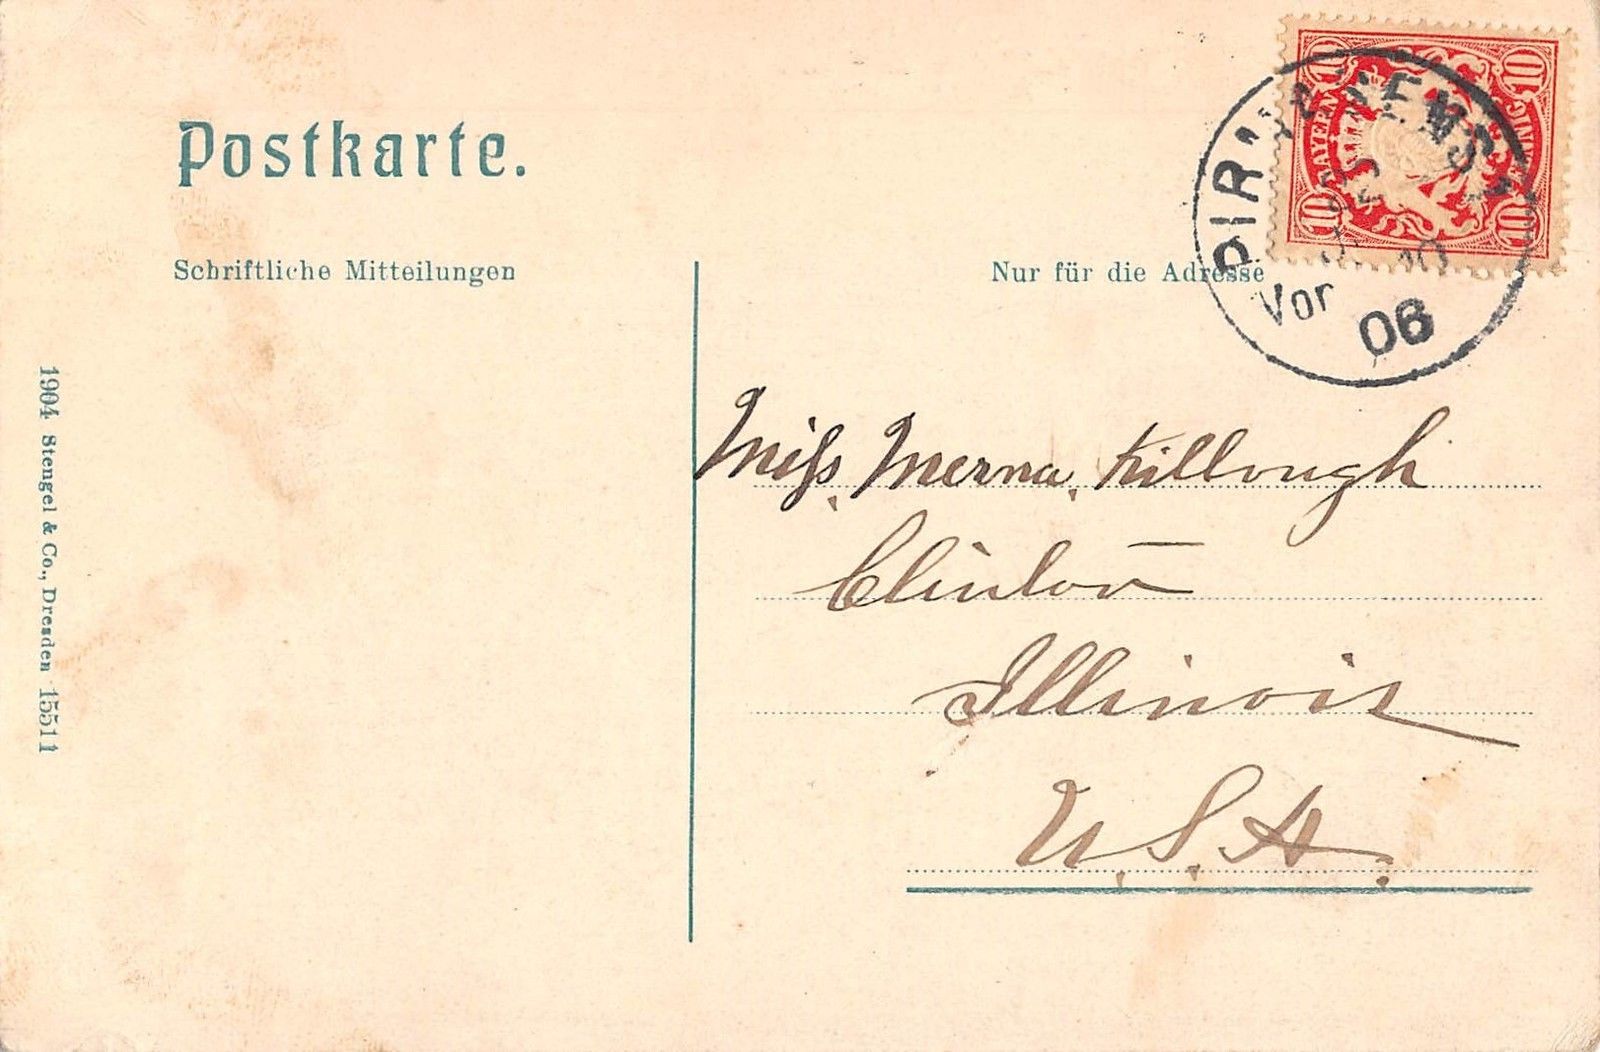 Postkarte.
Schriftliche Mitteilungen
Nur für die Adresse
1904 Stengel & Co., Dresden 15511
10 10
BAYERN
10 10
PIRMASENS
Vor
06
Miss Merna Killough
Clinton
Illinois
U.S.A.